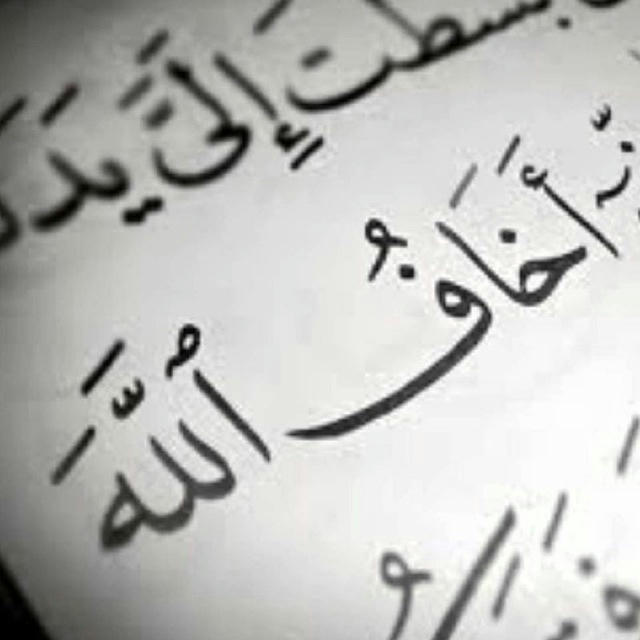 بَسَطتَ إِلَىَّ يَدَكَ
إِنِّىٓ أَخَافُ ٱللَّهَ